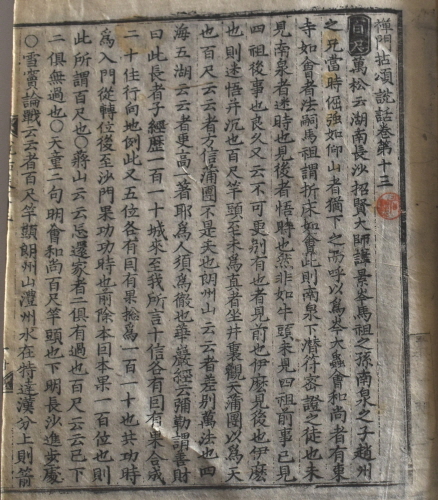 禪門拈頌說話卷第十三
百尺萬松云湖南長沙招賢大師諱景岑馬祖之孫南泉之子趙州
之兄當時倔強如仰山者猶下之馮呼以爲岑大蟲會和尚者有東
寺如會者法嗣馬祖謂折床如會此則南泉下潛符密證之徒也未
見南泉者迷時也見後者悟時也然非如牛頭未見四祖前事已見
四祖後事也良久又云不可更別有也者見前也伊麽見後也伊麽
也則迷悟幷沉也百尺竿頭至未爲眞者坐井裏觀天蒲團以爲天
也百尺云云者方信蒲團不是天也朗州山云云者差別萬法也四
海五湖云云者更高一著耶爲人須爲徹也華嚴經云彌勒謂善財
曰此長者子經歷一百一十城來至我所言十信各有因有果合成
二十住行向地例此又五位各有因有果捴爲一百一十也共功時
爲入門從轉位後至沙門果功功時也前除本因本果一百位也則
此所謂百尺也〇蔣山云云忌還家者二俱有過也百尺云云已下
二俱無過也〇天童二句明會和尚百尺竿頭也下明長沙進步處
〇雪竇論戰云云者百尺竿頭朗州山澧州水在特達漢分上則箭